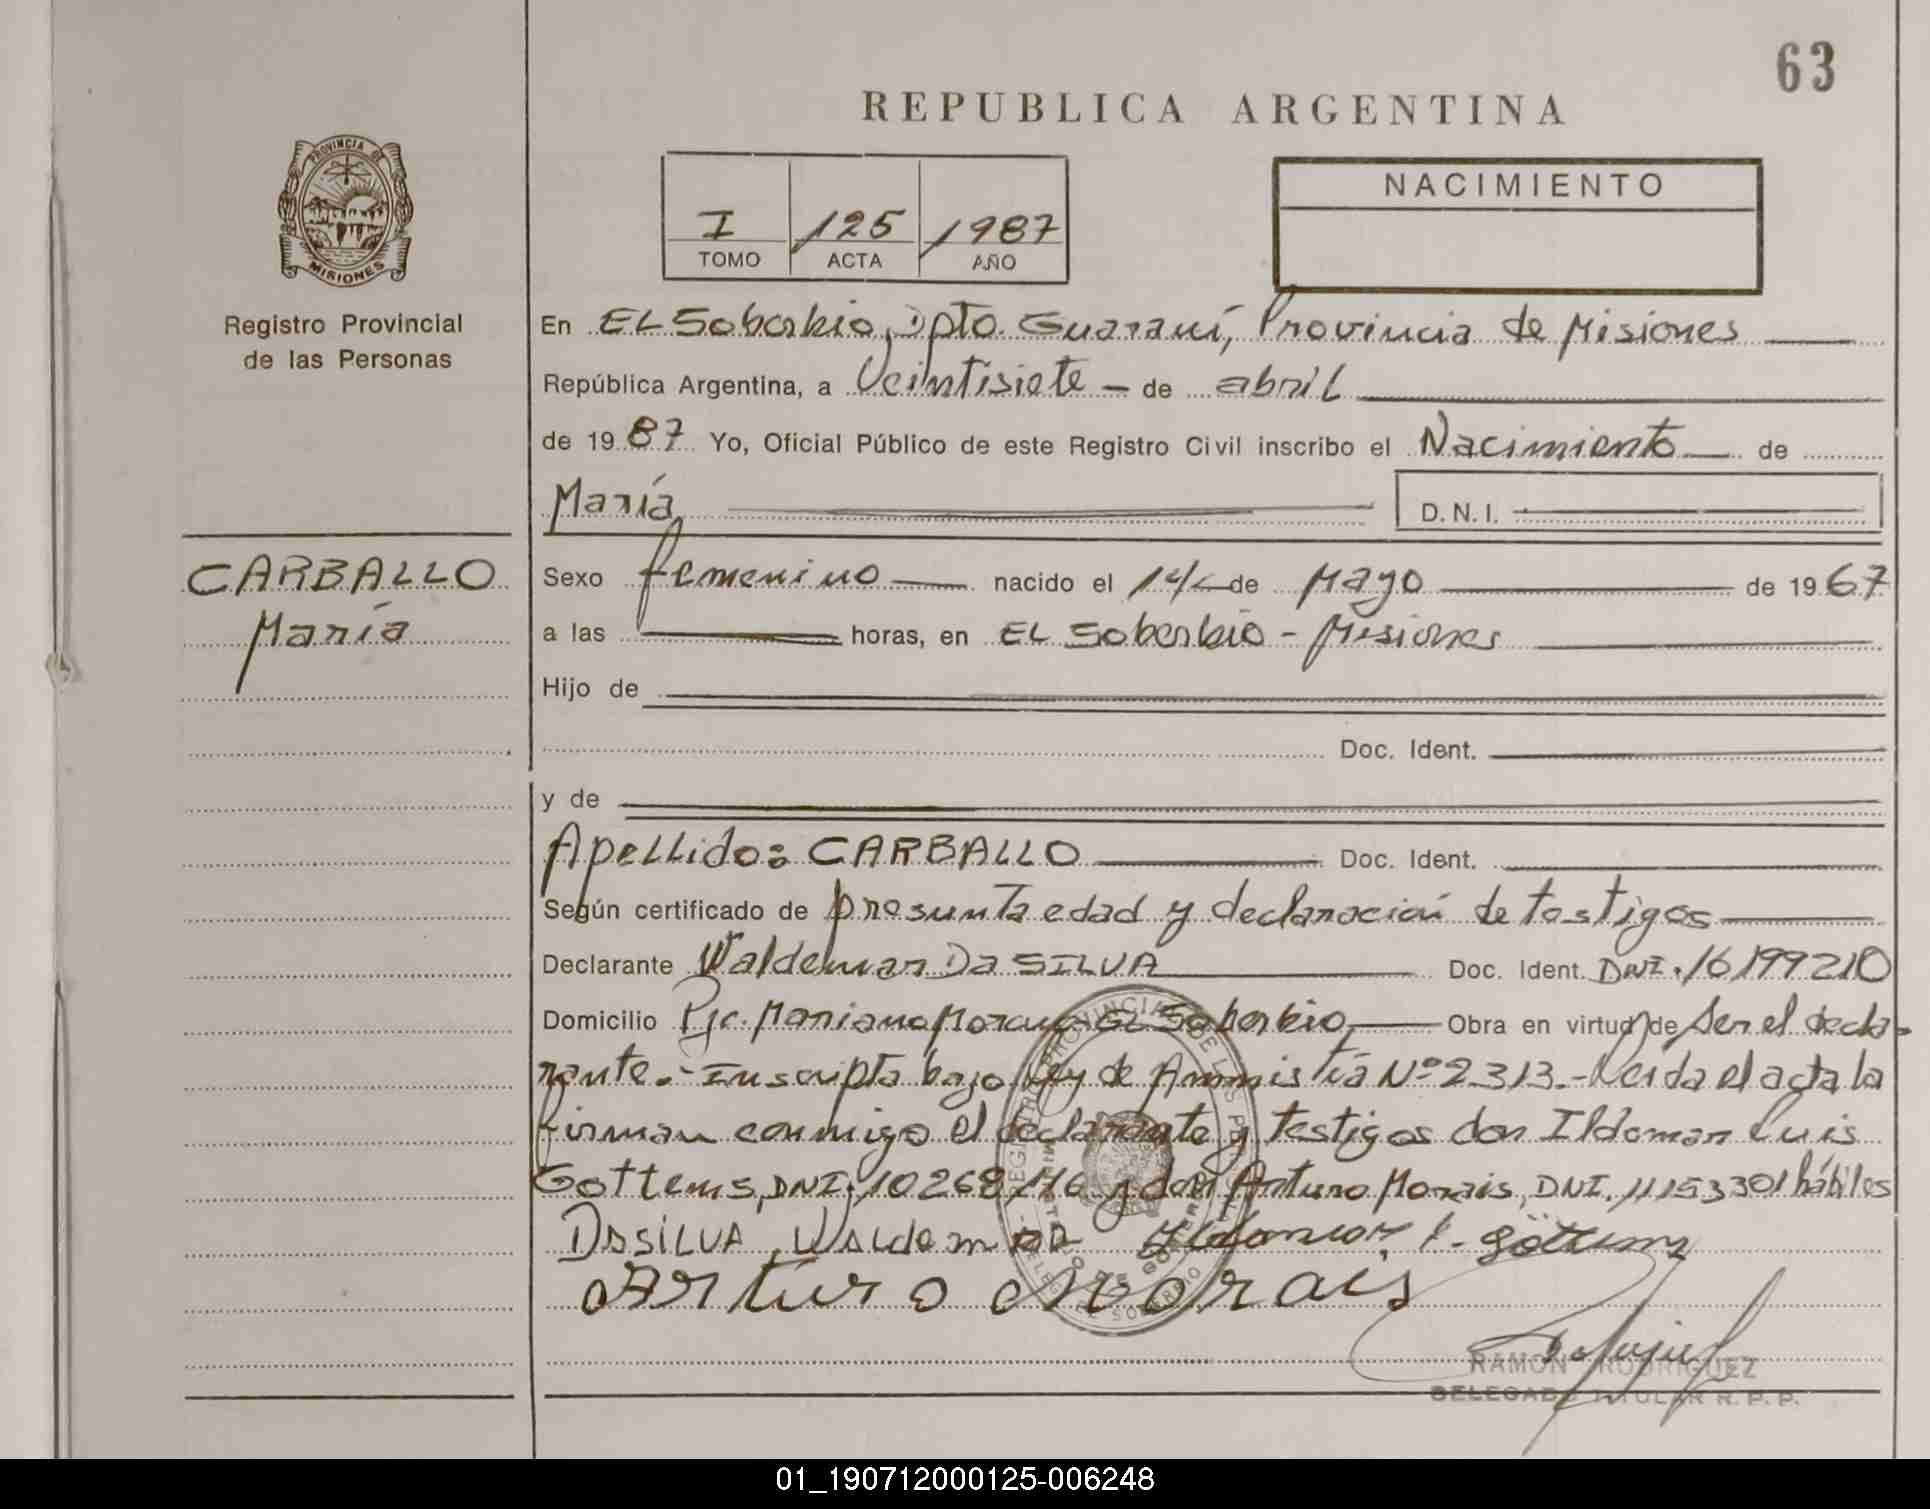 63
REPUBLICA ARGENTINA
PROVINCIA DE
MISIONES
Registro Provincial
de las Personas
I 125 1987
TOMO ACTA AÑO
NACIMIENTO
En EL Soberbio, Dpto. Guaraní, Provincia de Misiones
República Argentina, a Veintisiete de abril
de 1987 Yo, Oficial Público de este Registro Civil inscribo el Nacimiento de
María D.N.I.
CARBALLO
María
Sexo femenino nacido el 14 de Mayo de 1967
a las horas, en EL Soberbio - Misiones
Hijo de
Doc. Ident.
y de
Apellido: CARBALLO Doc. Ident.
Según certificado de presunta edad y declaración de testigos
Declarante Waldemar Da SILVA Doc. Ident. DNI. 16199210
Domicilio Pje. Mariano Moreno EL Soberbio Obra en virtud de ser el decla-
rante.- Inscripta bajo Ley de Amnistía Nº 2313.- Leída el acta la
firman conmigo el declarante y testigos don Ildomar Luis
Gottems, DNI. 10268116 y don Arturo Morais, DNI. 11153301 hábiles
DASILVA, WALdemAR Ildomar L. Göttems
Arturo Morais
RAMON RODRIGUEZ
DELEGADO TITULAR R. P. P.
01_190712000125-006248